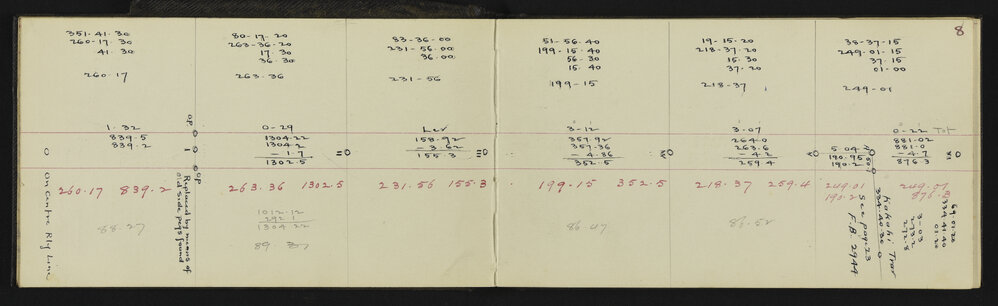 8
351-41-30
260-17-30
41-30
260-17
80-17-20
263-36-20
17-30
36-30
263-36
83-36-00
231-56-00
36-00
231-56
51-56-40
199-15-40
56-30
15-40
199-15
19-15-20
218-37-20
15-30
37-20
218-37
38-37-15
249-01-15
37-15
01-00
249-01
1-32
839.5
839.2
0-29
1304.22
1304.2
-1.7
1302.5
Lev
158.92
-3.62
155.3
3-12
357.92
357.36
-4.86
352.5
3-07
264.0
263.6
-4.2
259.4
5.04
190.95
190.2
0-22
881.02
881.0
-4.7
876.3
260.17 839.2
263.36 1302.5
231.56 155.3
199.15 352.5
218.37 259.4
249.01
190.2
249.01
876.3
88.27
1012.12
292.1
1304.22
86.47
86.52
On centre Rly Line
Replaced by means of
old side pegs found
See page 23
F.B 2944
Kakahi Trav
334.40.30
69.01.20
334.41.40
01.20
3-03
273.2
272.8